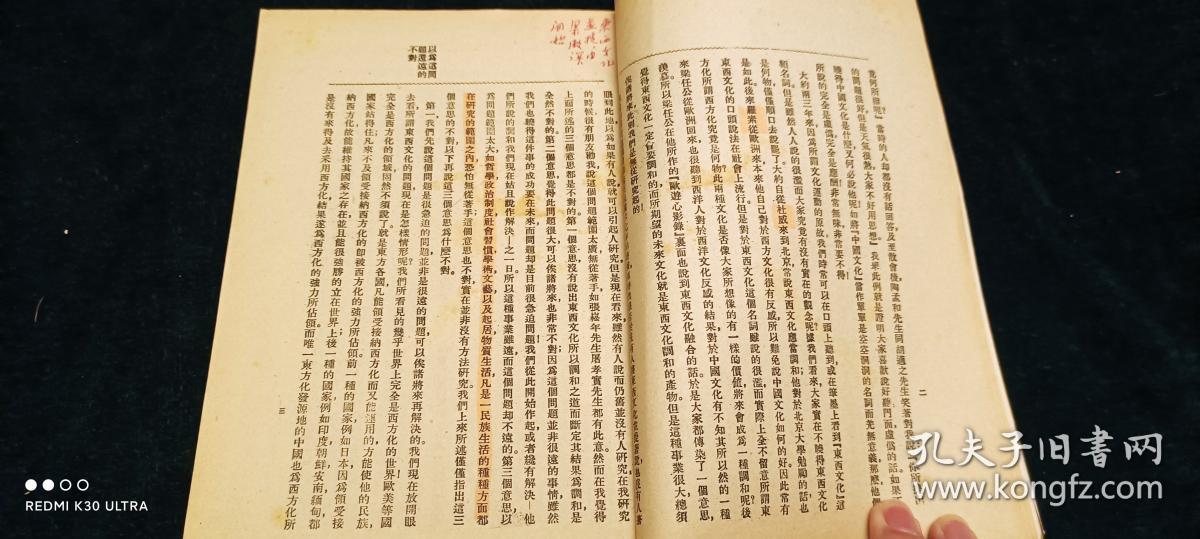 竟何所指呢?』當時的人却都沒有話回答及至散會後陶孟和先生同胡適之先生笑著對我
的問題很好但是天氣很熱大家不好用思想。』我舉此例就是證明大家喜歡說好聽門面虛僞的話。如果
得中國文化是什麼又何必說他呢!如將『中國文化』當作單單是空空洞洞的名詞而先無意義那麼他們
所說的完全是虛僞完全是應酬非常無味非常要不得!
大約兩三年來因為所謂文化運動的原故我們時常可以在口頭上聽到或在筆墨上看到『東西文化』這
類名詞但是雖然人人說的很濫而大家究竟有沒有實在的觀念呢?據我們看來大家實在不曉得東西文化
是何物僅僅順口去說罷了大約自從杜威來到北京常說東西文化應當調和他對於北京大學勉勵的話也
是如此後來羅素從歐洲來本來他自己對於西方文化很有反感所以難免說中國文化如何的好因此常有
東西文化的口頭說法在社會上流行但是對於東西文化這個名詞雖說的很濫而實際上全不留意所謂東
方化所謂西方化究竟是何物?此兩種文化是否像大家所想像的有一樣的價值將來會成為一種調和呢後
來梁任公從歐洲回來也很聽到西洋人對於西洋文化反感的結果對於中國文化有不知其所以然的一種
羨慕所以梁任公在他所作的『歐遊心影錄』裏面也說到東西文化融合的話於是大家都傳染了一個意思
覺得東西文化一定會要調和的而所期望的未來文化就是東西文化調和的產物但是這種事業很大總須
俟諸將來此刻我們是無從研究起的!
二
東西文化
梁漱溟
以為這問
題還遠的
不對
眼到此地以為如果有人說就可以引起人研究但是現在看來雖然有人說而仍舊並沒有人研究在我研究
的時候很有朋友勸我說這個問題範圍太廣無從著手如張崧年先生屠孝實先生都有此意然而在我覺得
上面所述的三個意思都是不對的第一個意思沒有說出東西文化所以調和之道而斷定其結果為調和是
全然不對的。第二個意思覺得此問題很大可以俟諸將來也非常不對因為這個問題並非很遠的事情雖然
我們也曉得這件事的成功要在未來而問題却是目前很急迫問題!我們從此開始作起或者纔有解決—他
們所說的調和我們現在姑且說作解決—之一日所以這種事業雖遠而這個問題却不遠的。第三個意思以
為問題範圍太大如哲學政治制度社會習慣學術文藝以及起居物質生活凡是一民族生活的種種方面都
在研究的範圍之內恐怕無從著手這個意思也不對實在並非沒有方法研究。我們上來所述僅僅指出這三
個意思的不對以下再說這三個意思為什麼不對。
第一我們先說這個問題是很急迫的問題並非是很遠的問題可以俟諸將來再解決的。我們現在放開眼
去看所謂東西文化的問題現在是怎樣情形呢?我們所看見的幾乎世界上完全是西方化的世界!歐美等國
完全是西方化的領域固然不須說了就是東方各國凡能領受接納西方化而又能運用的方能使他的民族,
國家站得住;凡來不及領受接納西方化的即被西方化的強力所佔領。前一種的國家例如日本因為領受接
納西方化故能維持其國家之存在並且能很強勝的立在世界上;後一種的國家例如印度朝鮮安南緬甸都
是沒有來得及去采用西方化結果遂為西方化的強力所佔領。而唯一東方化發源地的中國也為西方化所
三
孔夫子旧书网
www.kongfz.com
REDMI K30 ULTRA